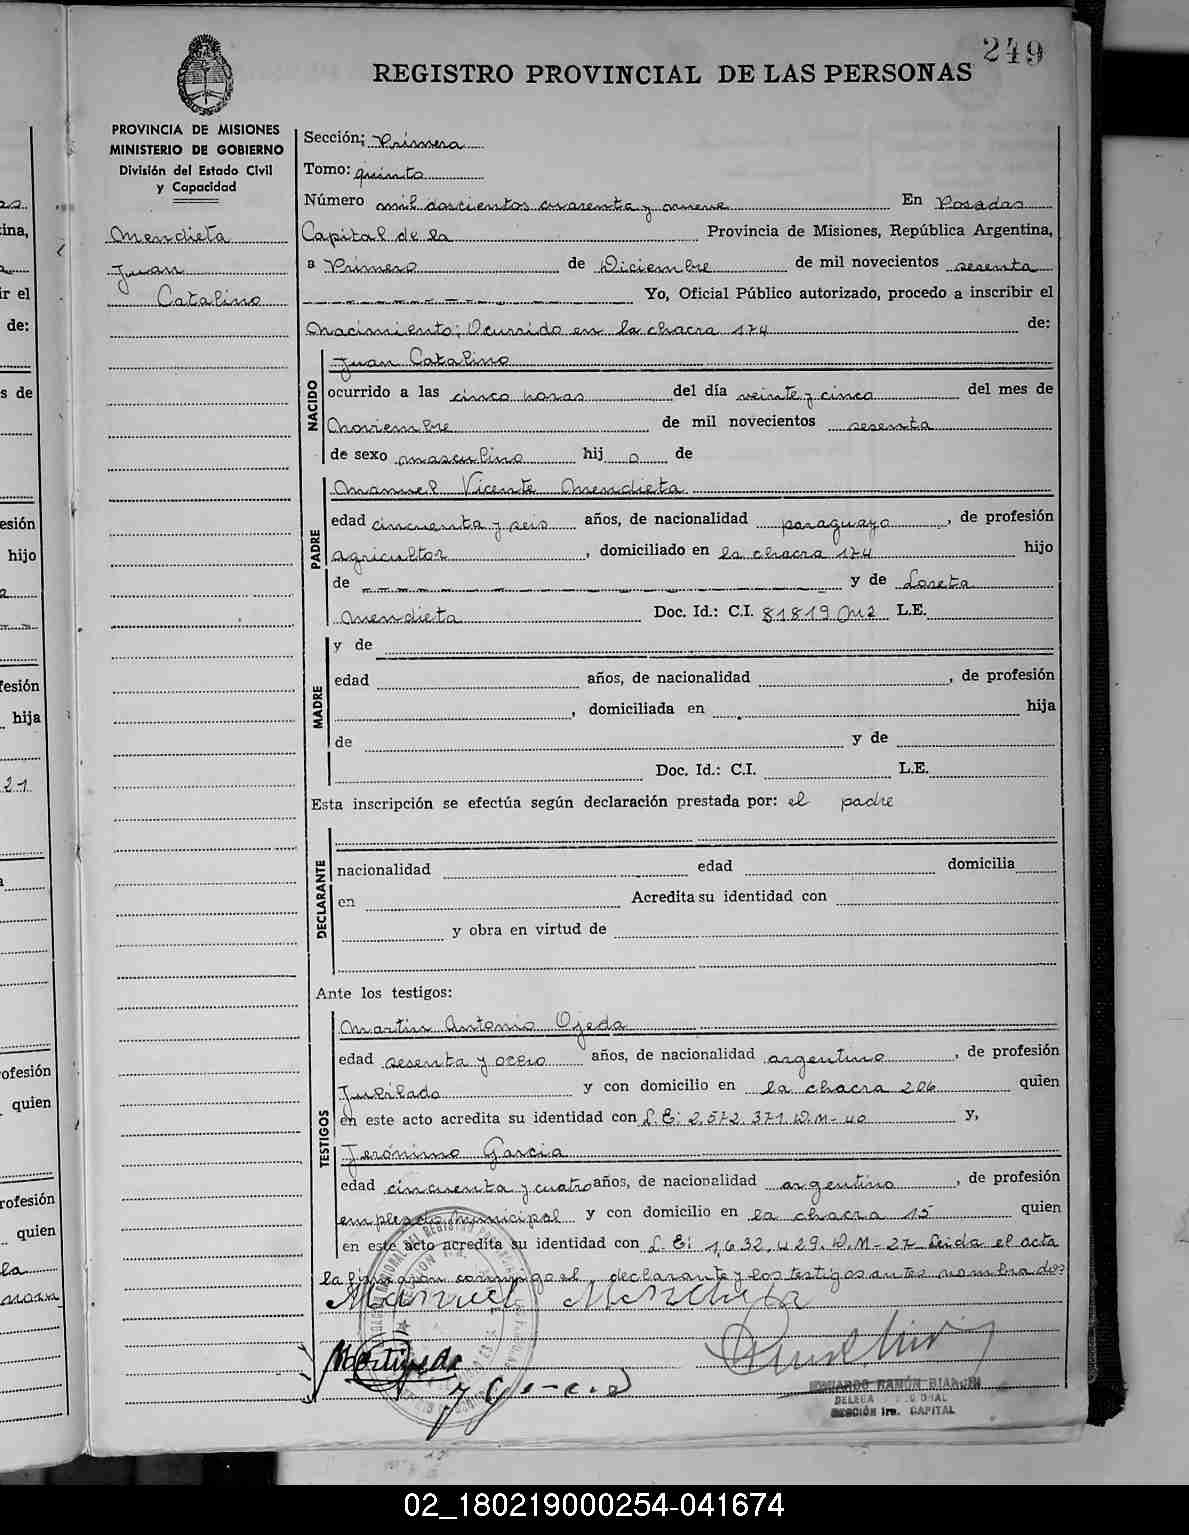 249
REGISTRO PROVINCIAL DE LAS PERSONAS
PROVINCIA DE MISIONES
MINISTERIO DE GOBIERNO
División del Estado Civil
y Capacidad
Mendieta
Juan
Catalino
Sección; Primera
Tomo: quinto
Número mil doscientos cuarenta y nueve En Posadas
Capital de la Provincia de Misiones, República Argentina,
a Primero de Diciembre de mil novecientos sesenta
Yo, Oficial Público autorizado, procedo a inscribir el
Nacimiento; Ocurrido en la chacra 174 de:
NACIDO
Juan Catalino
ocurrido a las cinco horas del día veinte y cinco del mes de
Noviembre de mil novecientos sesenta
de sexo masculino hij o de
PADRE
Manuel Vicente Mendieta
edad cincuenta y seis años, de nacionalidad paraguayo, de profesión
agricultor, domiciliado en la chacra 174 hijo
de y de Loreta
Mendieta Doc. Id.: C.I. 81819 M2 L.E.
MADRE
y de
edad años, de nacionalidad , de profesión
, domiciliada en hija
de y de
Doc. Id.: C.I. L.E.
Esta inscripción se efectúa según declaración prestada por: el padre
DECLARANTE
nacionalidad edad domicilia
en Acredita su identidad con
y obra en virtud de
Ante los testigos:
TESTIGOS
Martin Antonio Ojeda
edad sesenta y ocho años, de nacionalidad argentino, de profesión
Jubilado y con domicilio en la chacra 206 quien
en este acto acredita su identidad con L.E: 2.572.371.D.M-40 y,
Jerónimo Garcia
edad cincuenta y cuatro años, de nacionalidad argentino, de profesión
empleado Municipal y con domicilio en la chacra 15 quien
en este acto acredita su identidad con L.E: 1,632.429.D.M-27 Leida el acta
la firmaron conmigo el declarante y los testigos antes nombrados
Manuel Mendieta
EDUARDO RAMÓN BIANCHI
SECCIÓN 1ra. CAPITAL
02_180219000254-041674